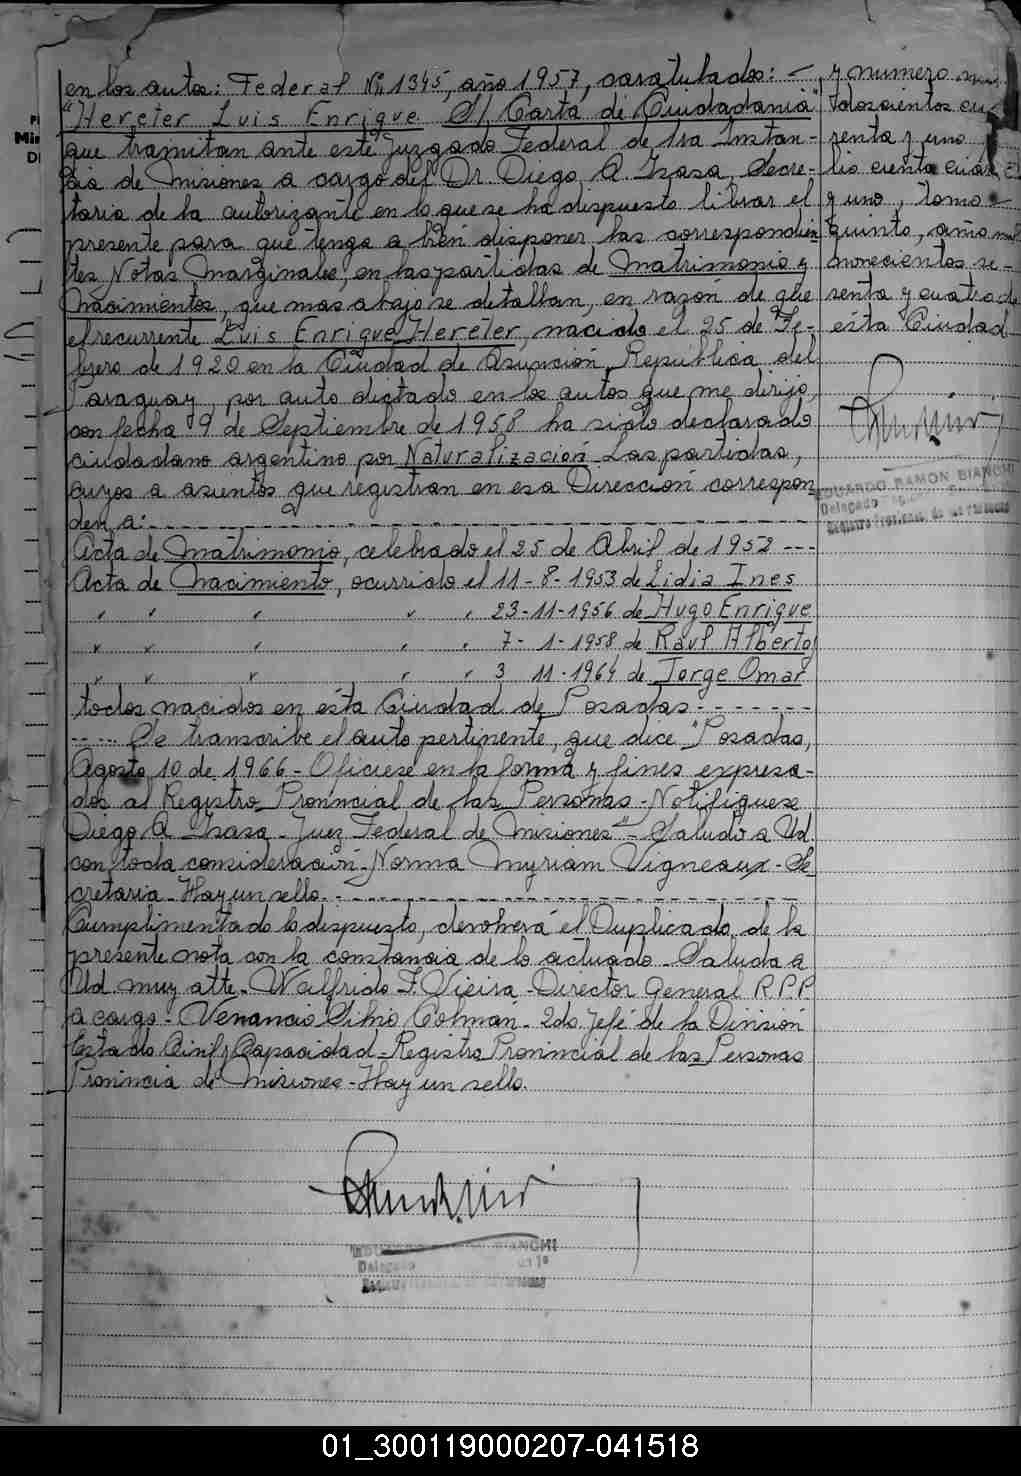 en los autos: Federal Nº 1345, año 1957, caratulados: -
"Hereter Luis Enrique S/ Carta de Ciudadania"
que tramitan ante este Juzgado Federal de 1ra Instan-
cia de Misiones a cargo del Dr. Diego A. Isasa, Secre-
taria de la autorizante en lo que se ha dispuesto librar el
presente para que tenga a bien disponer las correspondien
tes Notas Marginales, en las partidas de Matrimonio y
Nacimientos, que mas abajo se detallan, en razón de que
el recurrente Luis Enrique Hereter, nacido el 25 de Fe-
brero de 1920 en la Ciudad de Asunción, República del
Paraguay, por auto dictado en los autos que me dirijo,
con fecha 9 de Septiembre de 1958 ha sido declarado
ciudadano argentino por Naturalización. Las partidas,
cuyos a asientos que registran en esa Dirección correspon
den a: - - - - -
Acta de Matrimonio, celebrado el 25 de Abril de 1952 - - -
Acta de Nacimiento, ocurrido el 11-8-1953 de Lidia Ines
" " " " " 23-11-1956 de Hugo Enrique
" " " " " 7-1-1958 de Raul Alberto
" " " " " 3 11-1964 de Jorge Omar
todos nacidos en ésta Ciudad de Posadas - - - - - - -
- - ... Se transcribe el auto pertinente, que dice "Posadas,
Agosto 10 de 1966 - Oficiese en la forma y fines expresa-
dos al Registro Provincial de las Personas - Notifiquese
Diego A. Isasa - Juez Federal de Misiones" - Saludo a Ud.
con toda consideración - Norma Myriam Vigneaux - Se
cretaria - Hay un sello. - - - - -
Cumplimentado lo dispuesto, devolverá el Duplicado de la
presente nota con la constancia de lo actuado - Saluda a
Ud. muy atte. - Walfrido F. Vieira - Director General R.P.P
a cargo - Venancio Silvio Colman - 2do Jefe de la Division
Estado Civil y Capacidad - Registro Provincial de las Personas
Provincia de Misiones - Hay un sello.
y numero
doscientos cua
renta y uno,
lio ciento cuare
y uno, tomo
quinto, año mil
novecientos se-
senta y cuatro de
ésta Ciudad
EDUARDO RAMON BIANCHI
Delegado
Registro Provincial de las Personas
BIANCHI
Delegado
Registro Provincial de las Personas
01_300119000207-041518